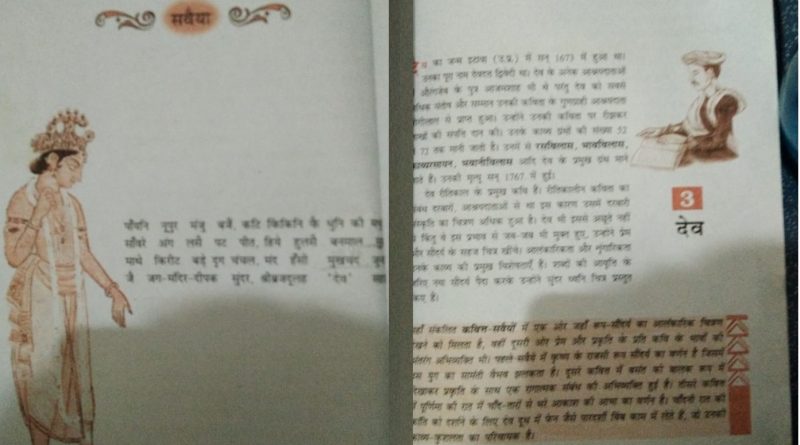 सवैया
पाँयनि नूपुर मंजु बजैं, कटि किंकिनि कै धुनि की
साँवरे अंग लसै पट पीत, हिये हुलसै बनमाल
माथे किरीट बड़े दृग चंचल, मंद हँसी मुखचंद
जै जग-मंदिर-दीपक सुंदर, श्रीब्रजदूलह 'देव'
का जन्म इटावा (उ.प्र.) में सन् 1673 में हुआ था।
उनका पूरा नाम देवदत्त द्विवेदी था। देव के अनेक आश्रयदाताओं
औरंगज़ेब के पुत्र आजमशाह भी थे परंतु देव को सबसे
अधिक संतोष और सम्मान उनकी कविता के गुणग्राही आश्रयदाता
भोगीलाल से प्राप्त हुआ। उन्होंने उनकी कविता पर रीझकर
लाखों की संपत्ति दान की। उनके काव्य ग्रंथों की संख्या 52
से 72 तक मानी जाती है। उनमें से रसविलास, भावविलास,
काव्यरसायन, भवानीविलास आदि देव के प्रमुख ग्रंथ माने
जाते हैं। उनकी मृत्यु सन् 1767 में हुई।
देव रीतिकाल के प्रमुख कवि हैं। रीतिकालीन कविता का
संबंध दरबारों, आश्रयदाताओं से था इस कारण उसमें दरबारी
संस्कृति का चित्रण अधिक हुआ है। देव भी इससे अछूते नहीं
थे किंतु वे इस प्रभाव से जब-जब भी मुक्त हुए, उन्होंने प्रेम
और सौंदर्य के सहज चित्र खींचे। आलंकारिकता और शृंगारिकता
उनके काव्य की प्रमुख विशेषताएँ हैं। शब्दों की आवृत्ति के
ज़रिए नया सौंदर्य पैदा करके उन्होंने सुंदर ध्वनि चित्र प्रस्तुत
किए हैं।
3
देव
यहाँ संकलित कवित्त-सवैयों में एक ओर जहाँ रूप-सौंदर्य का आलंकारिक चित्रण
देखने को मिलता है, वहीं दूसरी ओर प्रेम और प्रकृति के प्रति कवि के भावों की
अंतरंग अभिव्यक्ति भी। पहले सवैये में कृष्ण के राजसी रूप सौंदर्य का वर्णन है जिसमें
उस युग का सामंती वैभव झलकता है। दूसरे कवित्त में बसंत को बालक रूप में
दिखाकर प्रकृति के साथ एक रागात्मक संबंध की अभिव्यक्ति हुई है। तीसरे कवित्त
में पूर्णिमा की रात में चाँद-तारों से भरे आकाश की आभा का वर्णन है। चाँदनी रात की
कांति को दर्शाने के लिए देव दूध में फेन जैसे पारदर्शी बिंब काम में लेते हैं, जो उनकी
काव्य-कुशलता का परिचायक है।